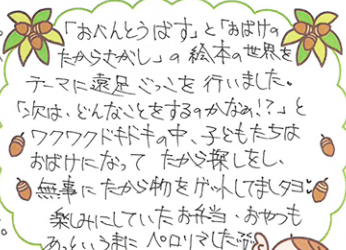 「おべんとうばす」と「おばけの
たからさがし」の絵本の世界を
テーマに遠足ごっこを行いました。
「次は、どんなことをするのかなぁ!?」と
ワクワクドキドキの中、子どもたちは
おばけになって たから探しをし、
無事にたから物をゲットしてましたヨ♥
楽しみにしていたお弁当、おやつも
あっというまに ペロリマした